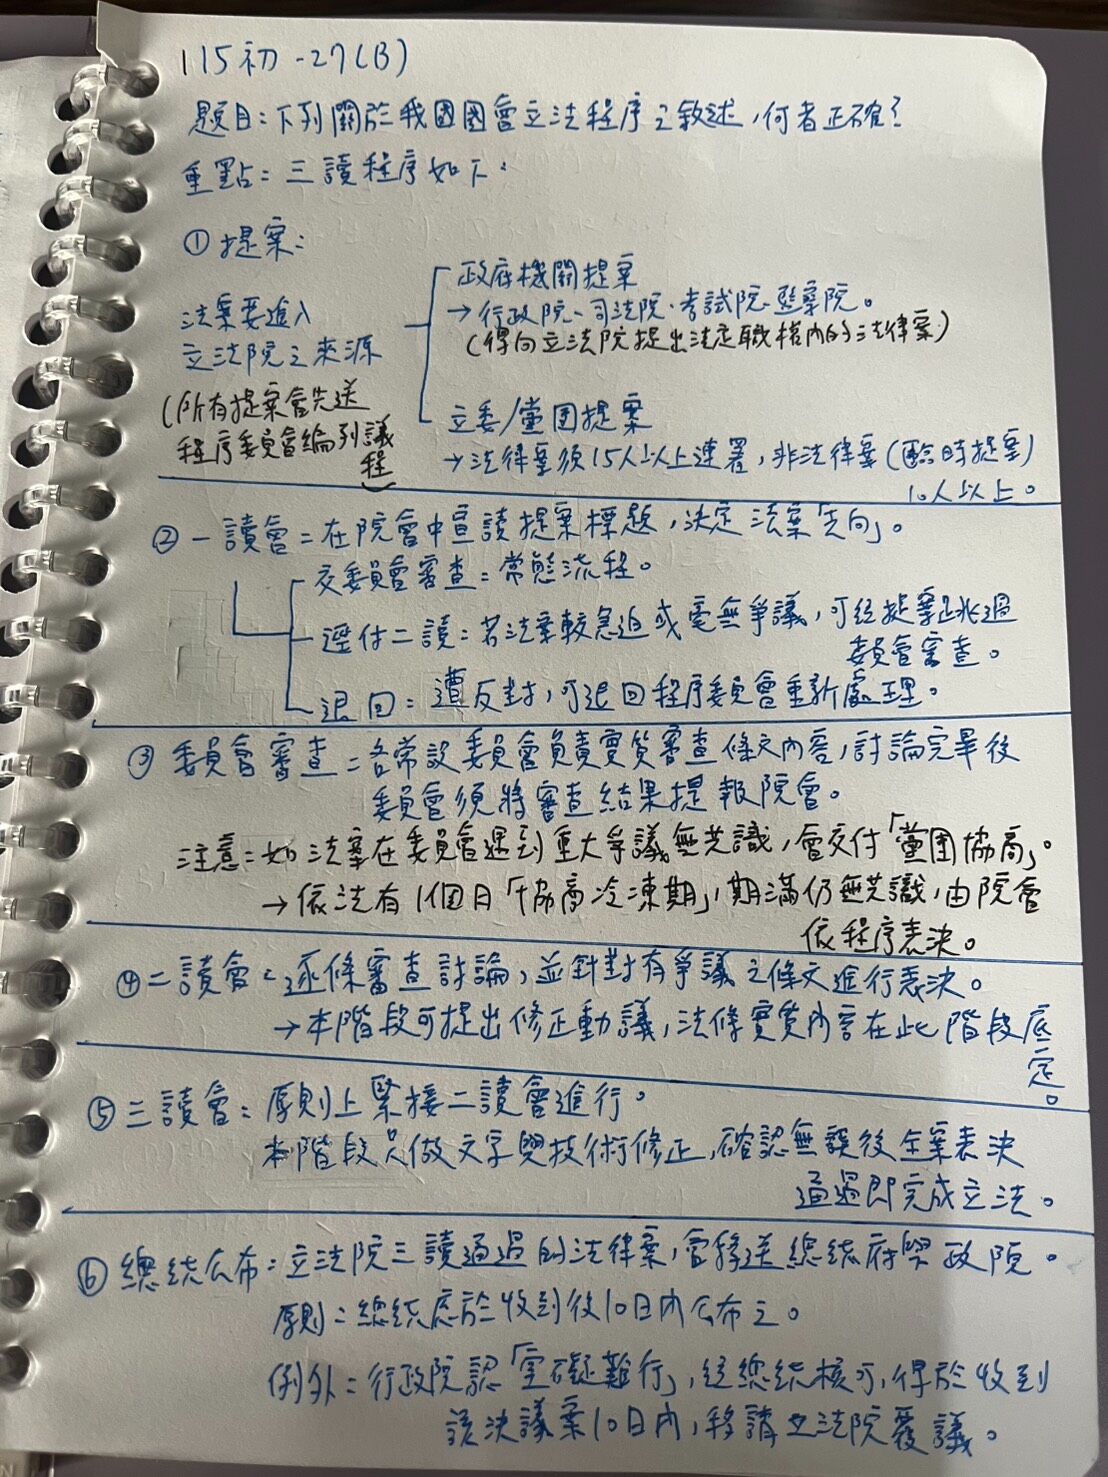 115初-27(B)
題目:下列關於我國國會立法程序之敘述,何者正確?
重點:三讀程序如下:
①提案:
法案要進入
立法院之來源
(所有提案會先送
程序委員會編列議
程)
政府機關提案
→行政院、司法院、考試院、監察院。
(得向立法院提出法定職權內的法律案)
立委/黨團提案
→法律案須15人以上連署,非法律案(臨時提案)
10人以上。
②一讀會:在院會中宣讀提案標題,決定法案「去向」。
交委員會審查:常態流程。
逕付二讀:若法案較急迫或毫無爭議,可經提案跳過
委員會審查。
退回:遭反對,可退回程序委員會重新處理。
③委員會審查:各常設委員會負責實質審查條文內容,討論完畢後
委員會須將審查結果提報院會。
注意:如法案在委員會遇到重大爭議無共識,會交付「黨團協商」。
→依法有1個月「協商冷凍期」,期滿仍無共識,由院會
依程序表決。
④二讀會:逐條審查討論,並針對有爭議之條文進行表決。
→本階段可提出修正動議,法條實質內容在此階段底
定。
⑤三讀會:原則上緊接二讀會進行。
本階段只做文字與技術修正,確認無誤後全案表決
通過即完成立法。
⑥總統公布:立法院三讀通過的法律案,會移送總統府與政院。
原則:總統應於收到後10日內公布之。
例外:行政院認「窒礙難行」,經總統核可,得於收到
該決議案10日內,移請立法院覆議。